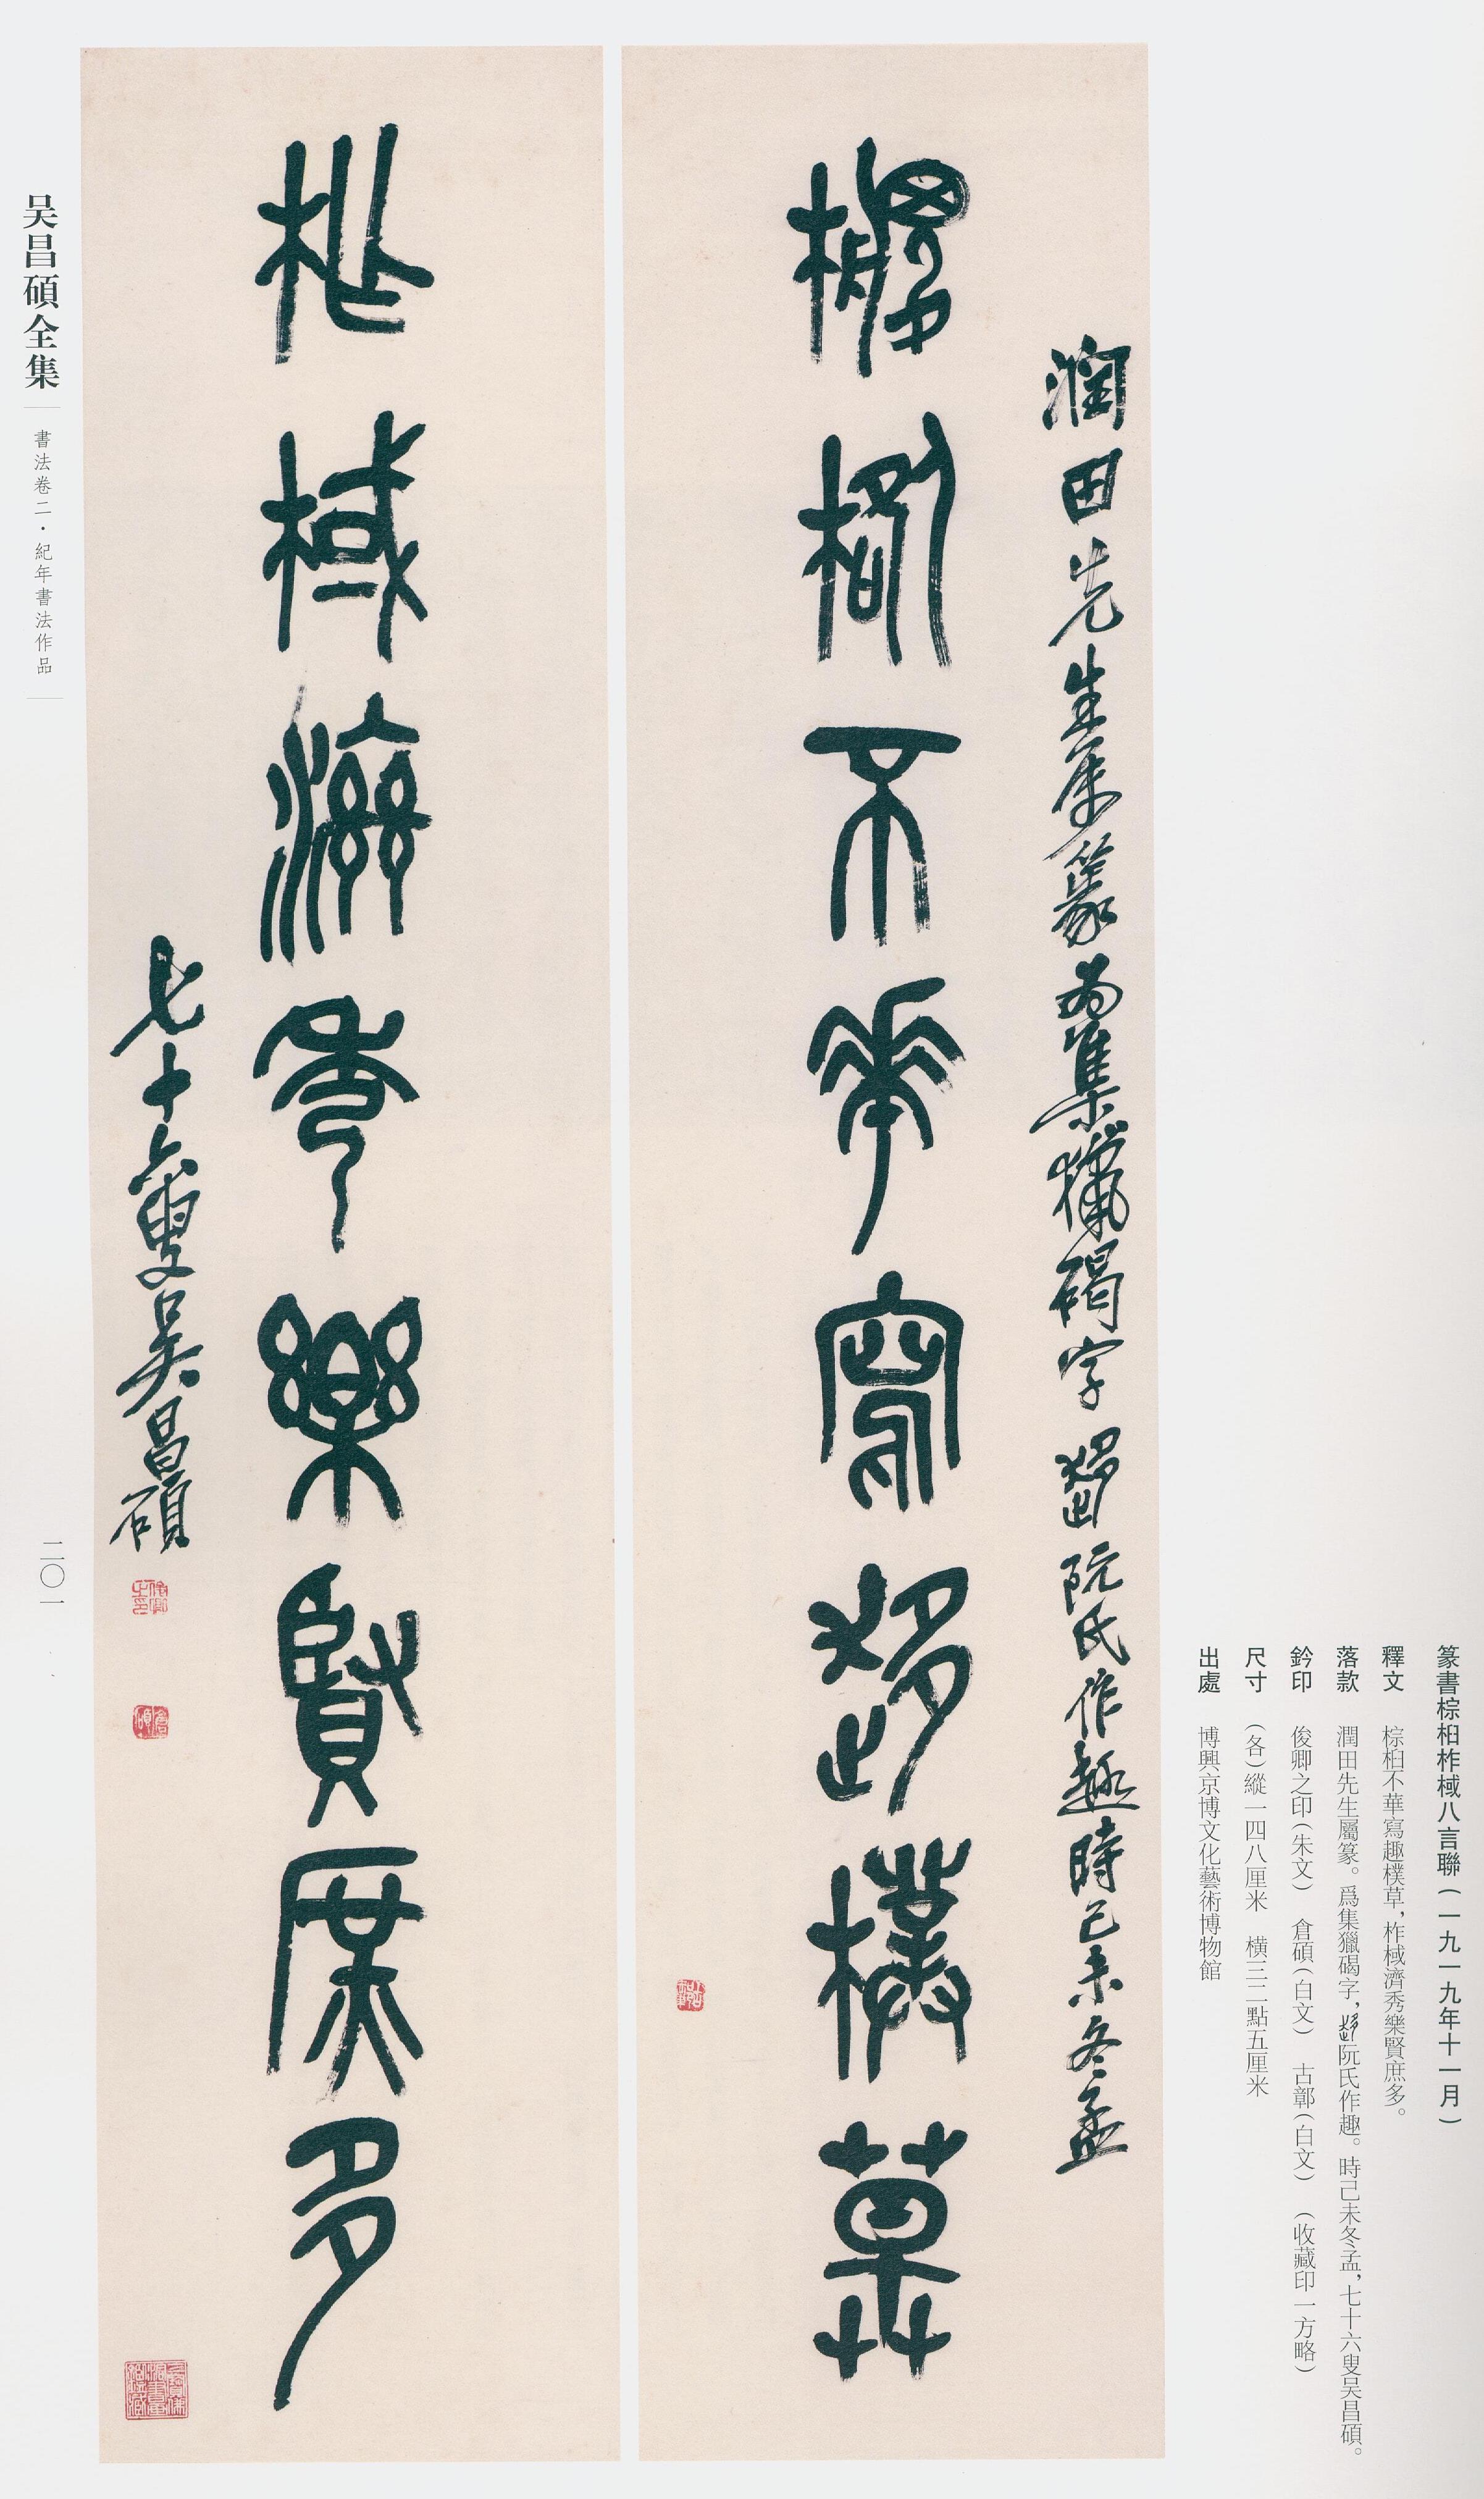 篆書棕桕柞棫八言聯（一九一九年十一月）
釋文　棕桕不華寫趣樸草，柞棫濟秀樂賢庶多。
落款　潤田先生屬篆。爲集獵碣字，趍阮氏作趣。時己未冬孟，七十六叟吴昌碩。
鈐印　俊卿之印（朱文）　倉碩（白文）　古鄣（白文）　（收藏印一方略）
尺寸　（各）縱一四八厘米　橫三二點五厘米
出處　博興京博文化藝術博物館
潤田先生屬篆為集獵碣字趍阮氏作趣時己未冬孟
棕桕不華寫趍樸草
柞棫濟秀樂賢庶多
七十六叟吴昌碩
俊卿之印
倉碩
吴昌碩全集
書法卷二·紀年書法作品
二〇一